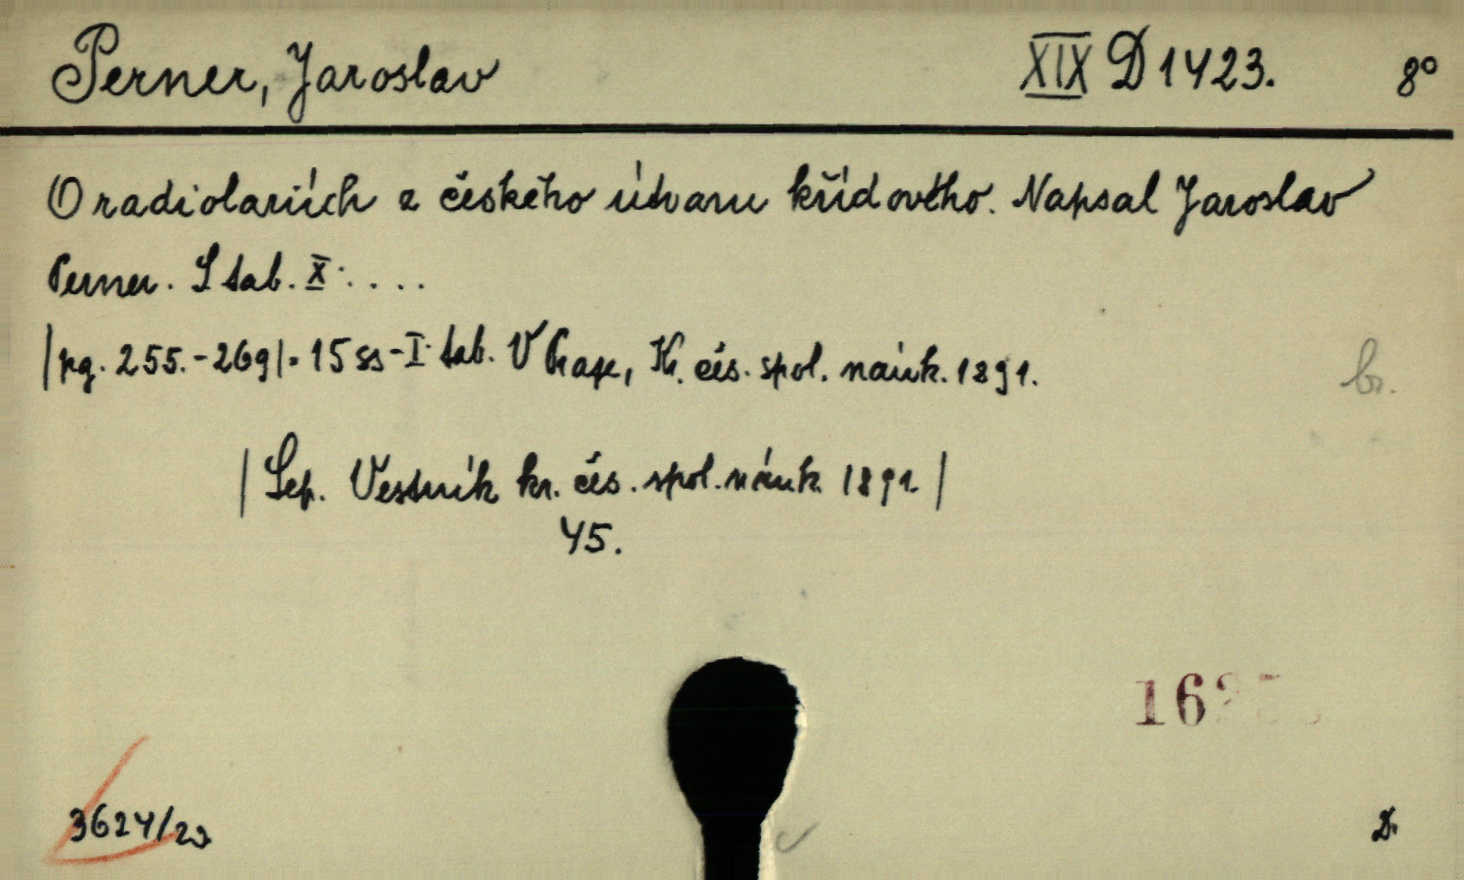 Perner, Jaroslav XIX D 1423. 8°
O radiolariích z českého útvaru křídového. Napsal Jaroslav
Perner. S tab. X. . . . .
|pg. 255.-269|. 15 ss - I. tab. V Praze, Kr. čes. spol. náuk. 1891.
br.
|Sep. Vestník kr. čes. spol. náuk. 1891|
45.
3624/23
D.